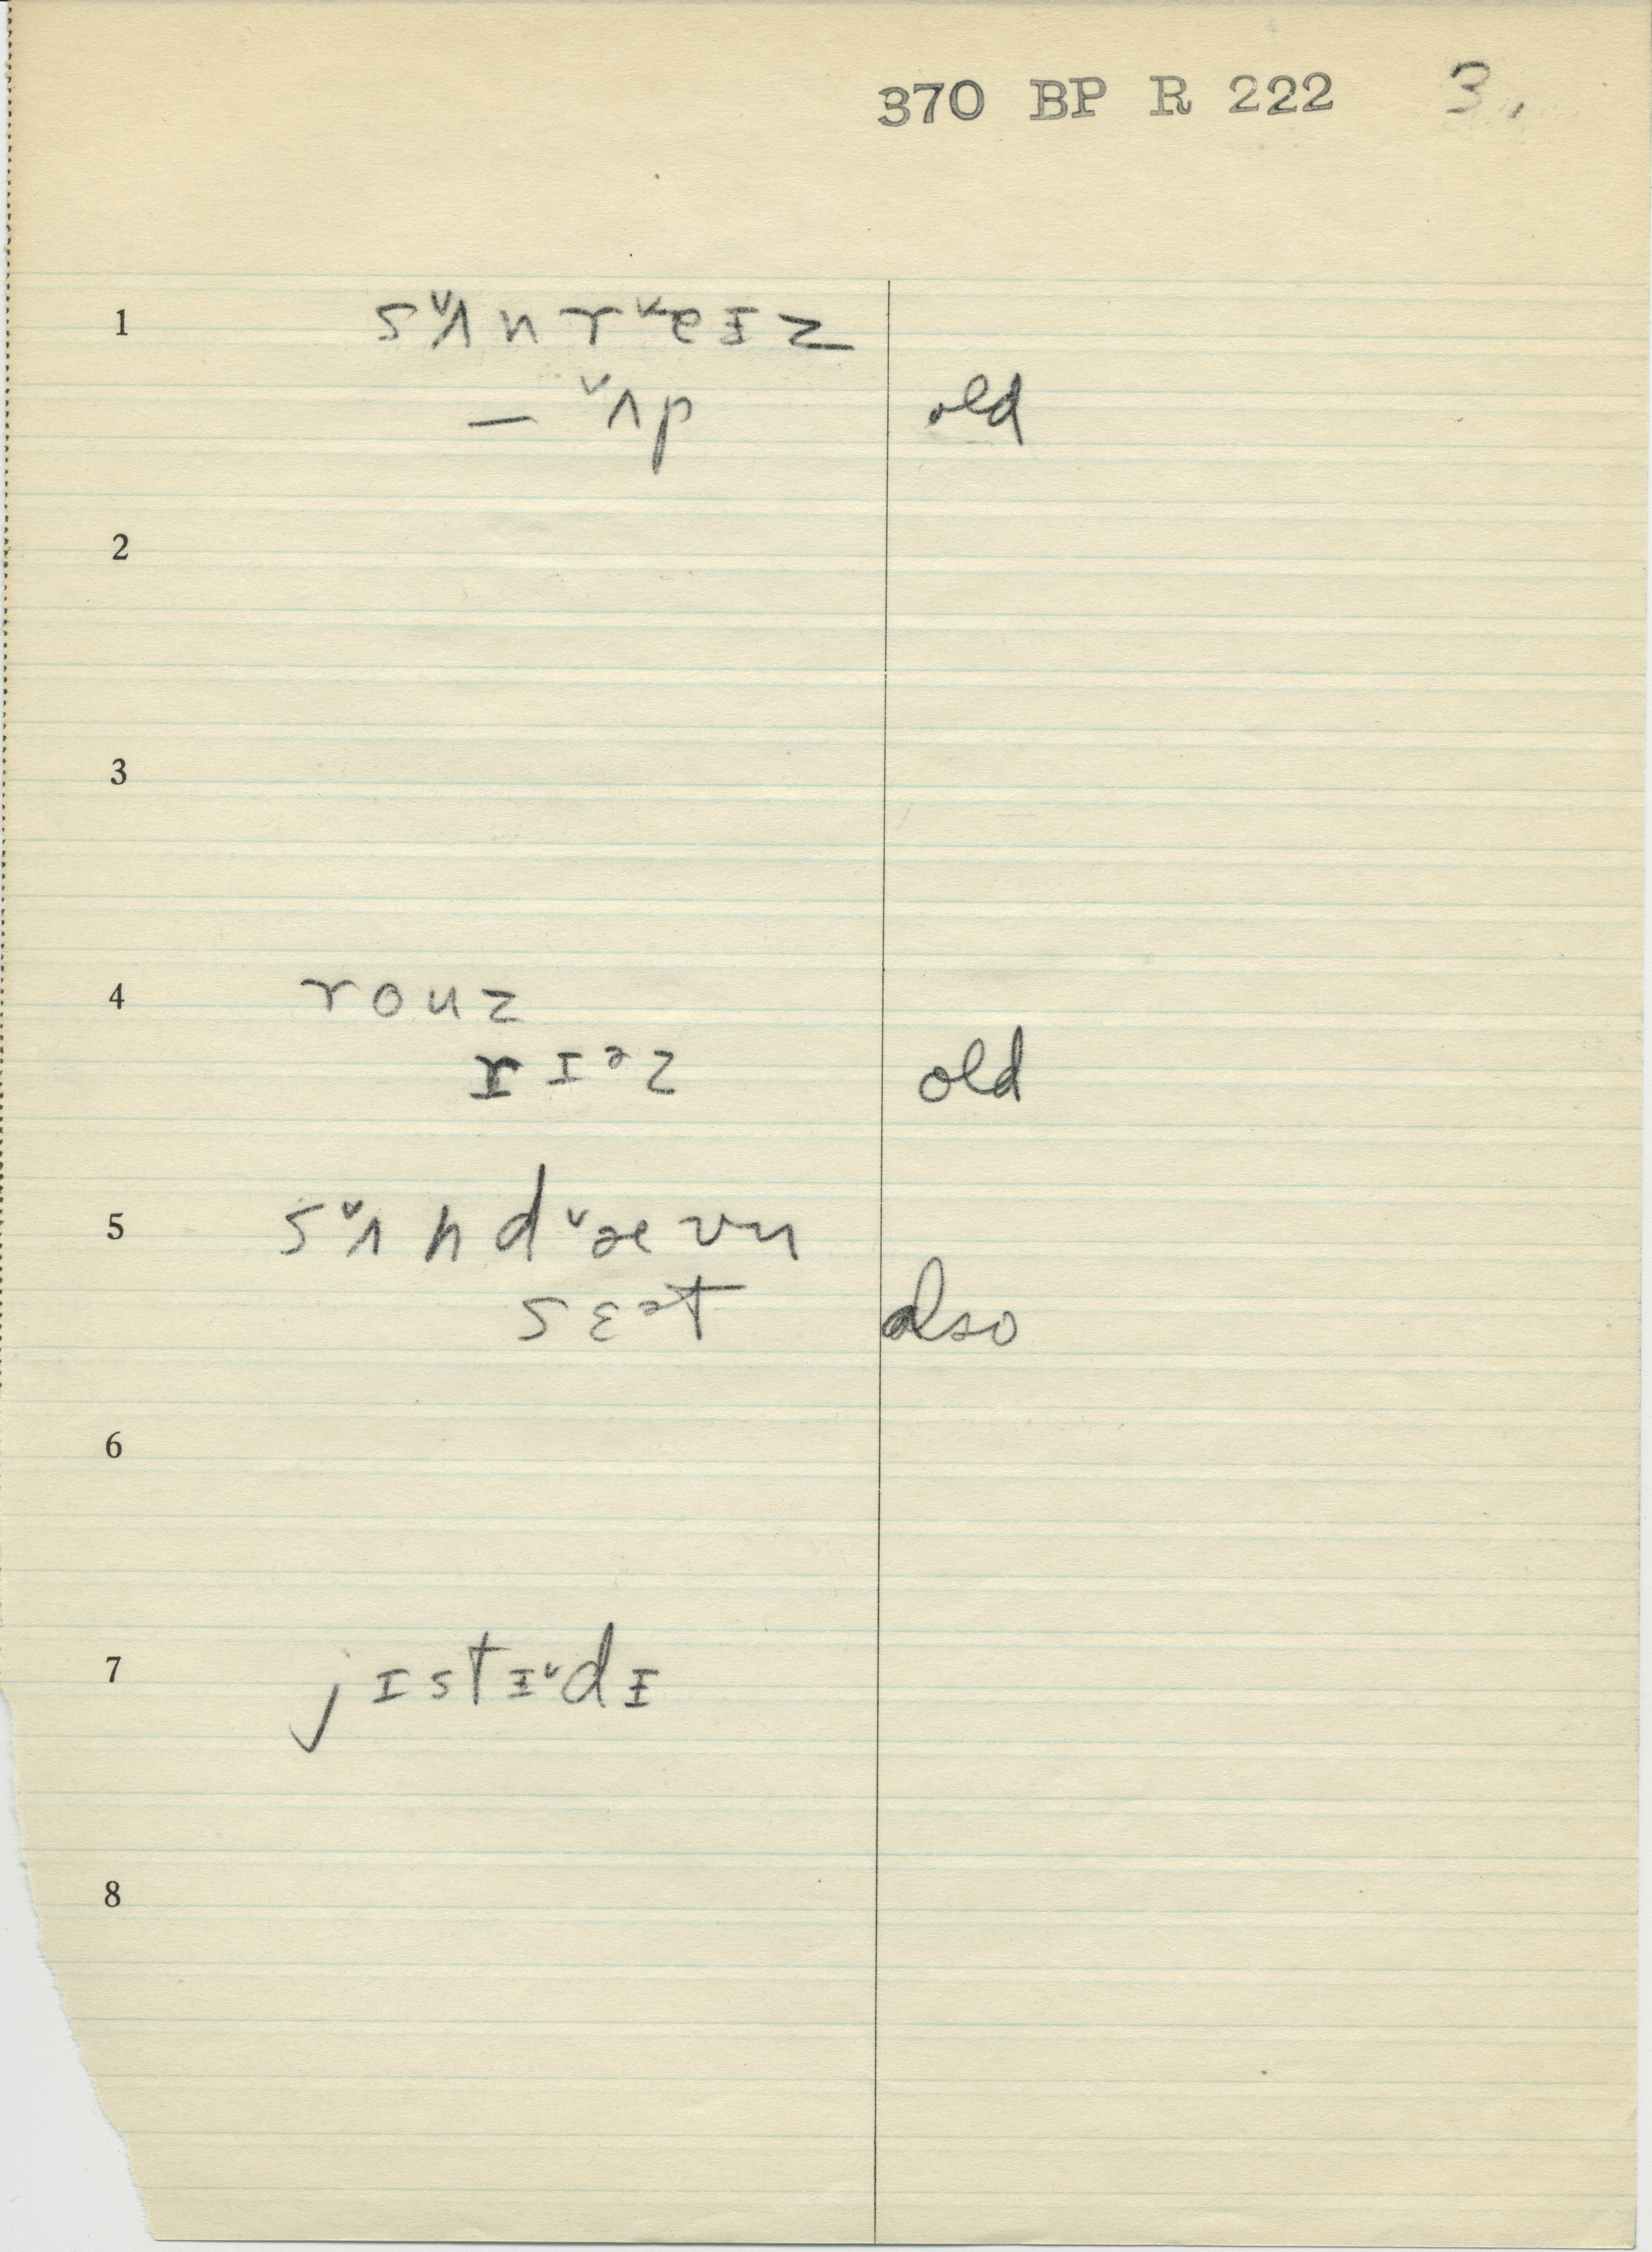 370 BP R 222 3.
1 s˅ʌn r˅eɪz
– ˅ʌp old
2
3
4 rouz
rɪᵊz old
5 s˅ʌn d˅æʊn
sɛᵊt also
6
7 jɪstɪ˅dɪ
8